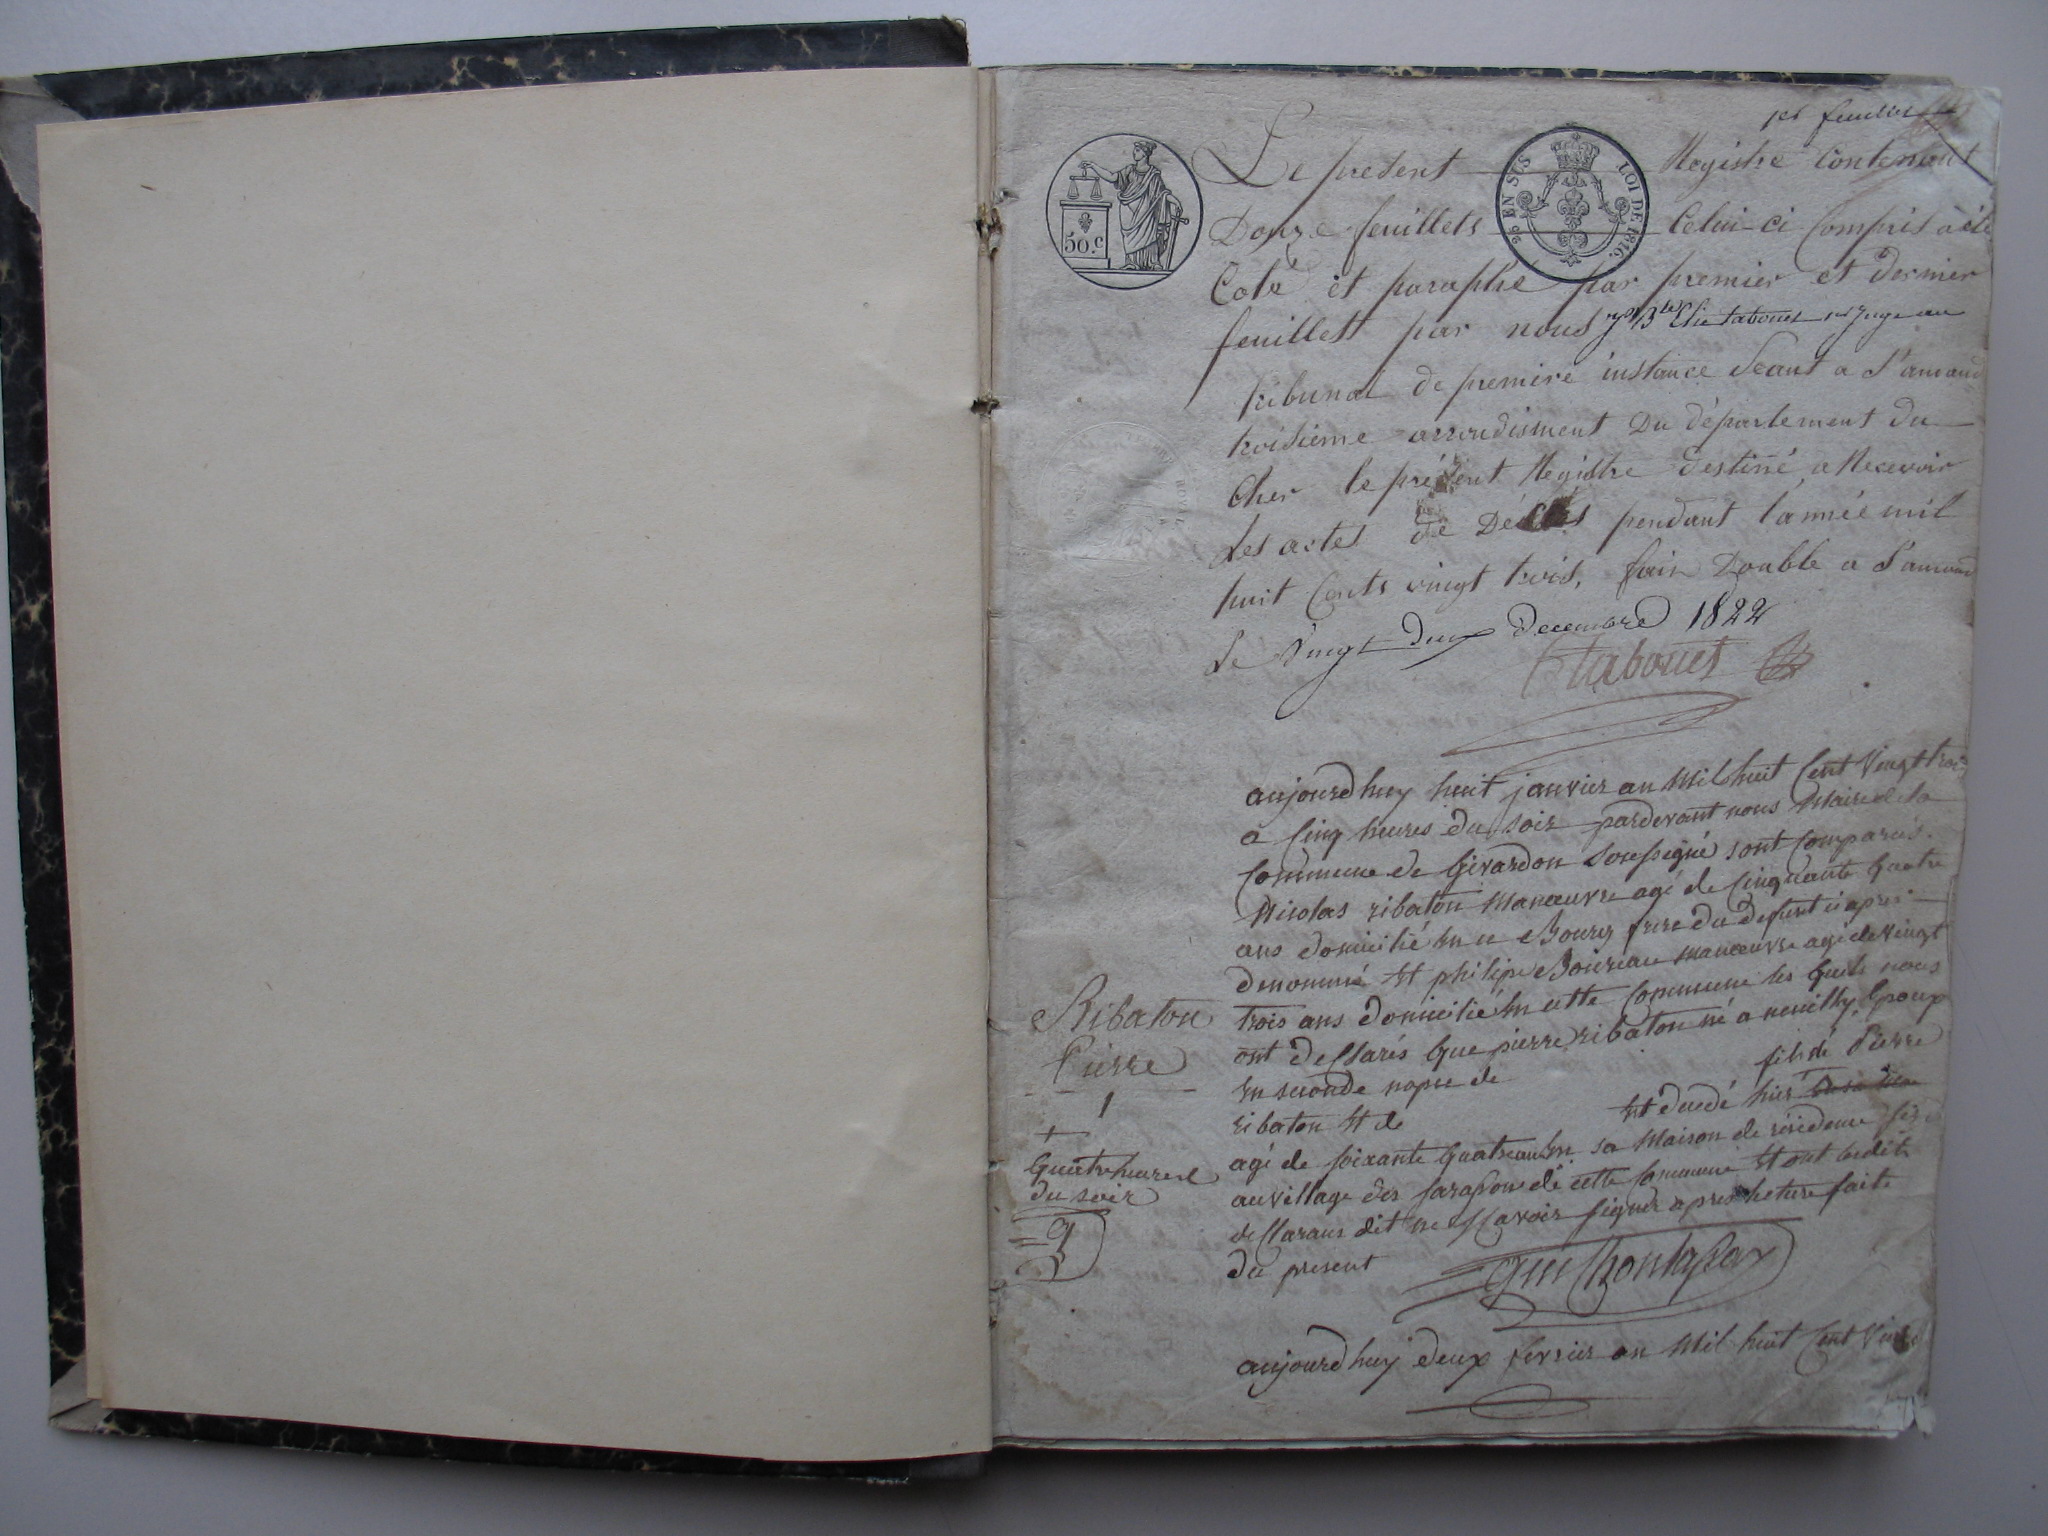 1er feuillet
50.c
25 EN SUS LOI DE 1816.
Le present Registre Contenant
Douze feuillets Celui ci Compris a été
Coté et paraphé par premier et dernier
feuillest par nous Elie tabouet juge au
tribunal de premiere instance Seant a St amand
troisieme arrondisment Du département du
Cher le présent Registre destiné a Recevoir
Les actes de Décès pendant l'année mil
huit Cents vingt trois, fait Double a St amand
Le Vingt Deux decembre 1822
Tabouet
aujourdhuy huit janvier an Mil huit Cent Vingt trois
a Cinq heures du soir pardevant nous Maire de la
Commune de Givardon soussigné sont comparus
Nicolas ribaton Manœuvre agé de Cinquante quatre
ans domicilié en ce Bourg frere du defunt ci apres
denommé Et philipe Boireau manœuvre agé de Vingt
trois ans domicilié En cette Commune les quels nous
ont desclarés que pierre ribaton né a neuilly, Epoux
En seconde nopce de fils de Pierre
ribaton Et de Est decedé hier
agé de soixante quatre ans En sa Maison de residence
au village des de cette Commune Et ont lesdits
desclarans dit ne sçavoir signer apres lecture faite
du present
Ribaton
Pierre
1
Quatre heures
du soir
aujourdhuy deux fevrier an Mil huit Cent Vingt